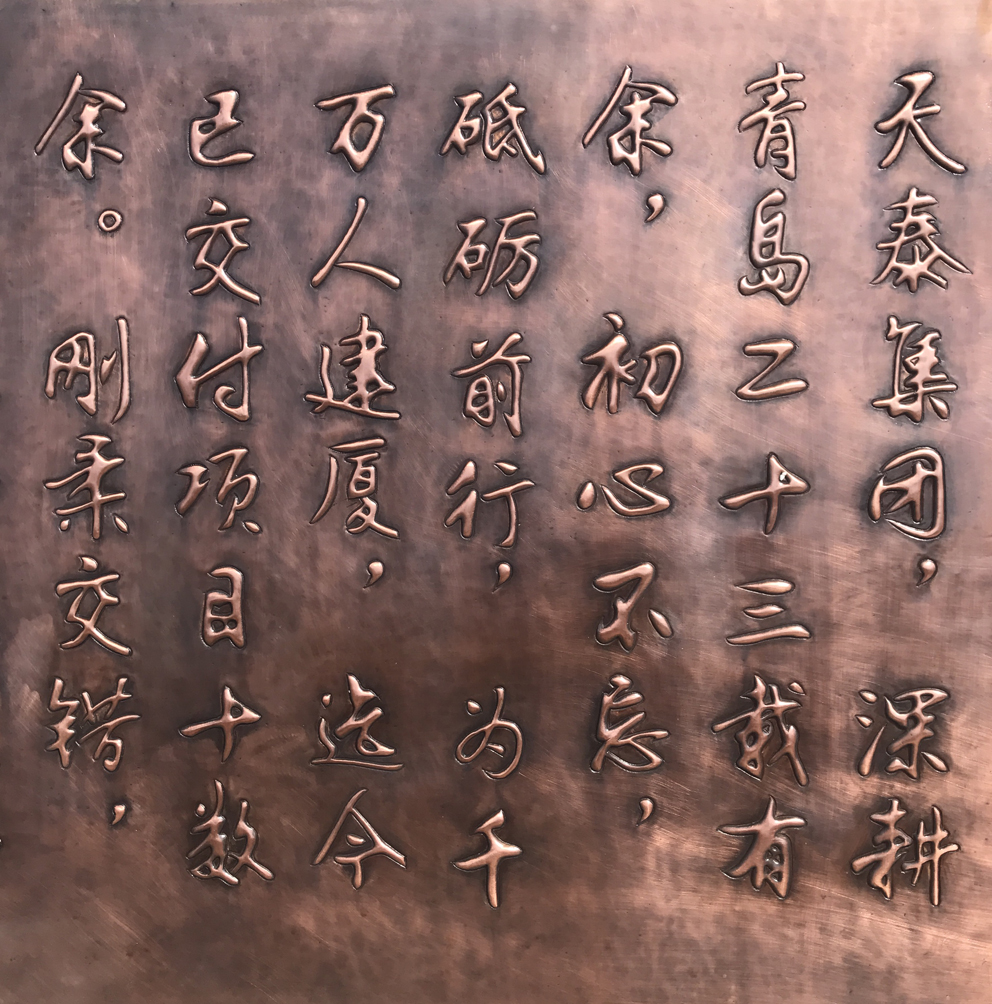 天泰集团，深耕
青岛二十三载有
余，初心不忘，
砥砺前行，为千
万人建厦，迄今
已交付项目十数
余。刚柔交错，